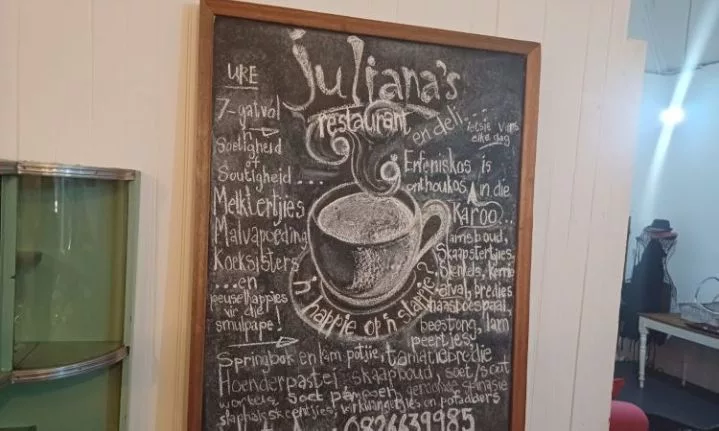 Juliana's
restaurant
en deli...
URE
7-gatvol
in
Soetigheid
of
Soutigheid...
Melktertjies
Malvapoeding
Koeksisters
...en
peuselhappies
vir die
smulpape!
ietsie vars
elke dag
Erfeniskos is
onthoukos in die
Karoo...
lamsboud,
Skaapstertjies
Skenkels, kerrie
afval, bredies
haasboespaai,
beestong, lam
peertjies
'n happie of 'n slukkie?
Springbok en lam potjie, tamatiebredie
Hoenderpastei skaapboud, soet/sout
wortels
geroomde spinasie
0826639985